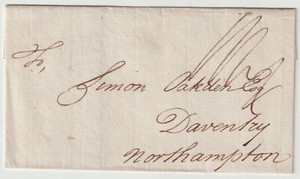 To,
Simon Oakden Esq
Daventry
Northampton